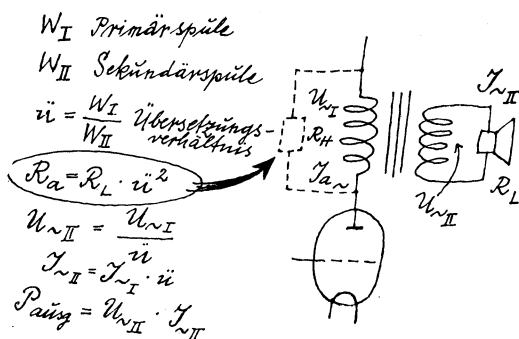 W_I Primärspule
W_II Sekundärspule
ü = W_I / W_II Übersetzungs-verhältnis
R_a = R_L · ü²
U_~II = U_~I / ü
J_~II = J_~I · ü
P_ausg = U_~II · J_~II
U_~I
R_H
J_a~
J_~II
U_~II
R_L